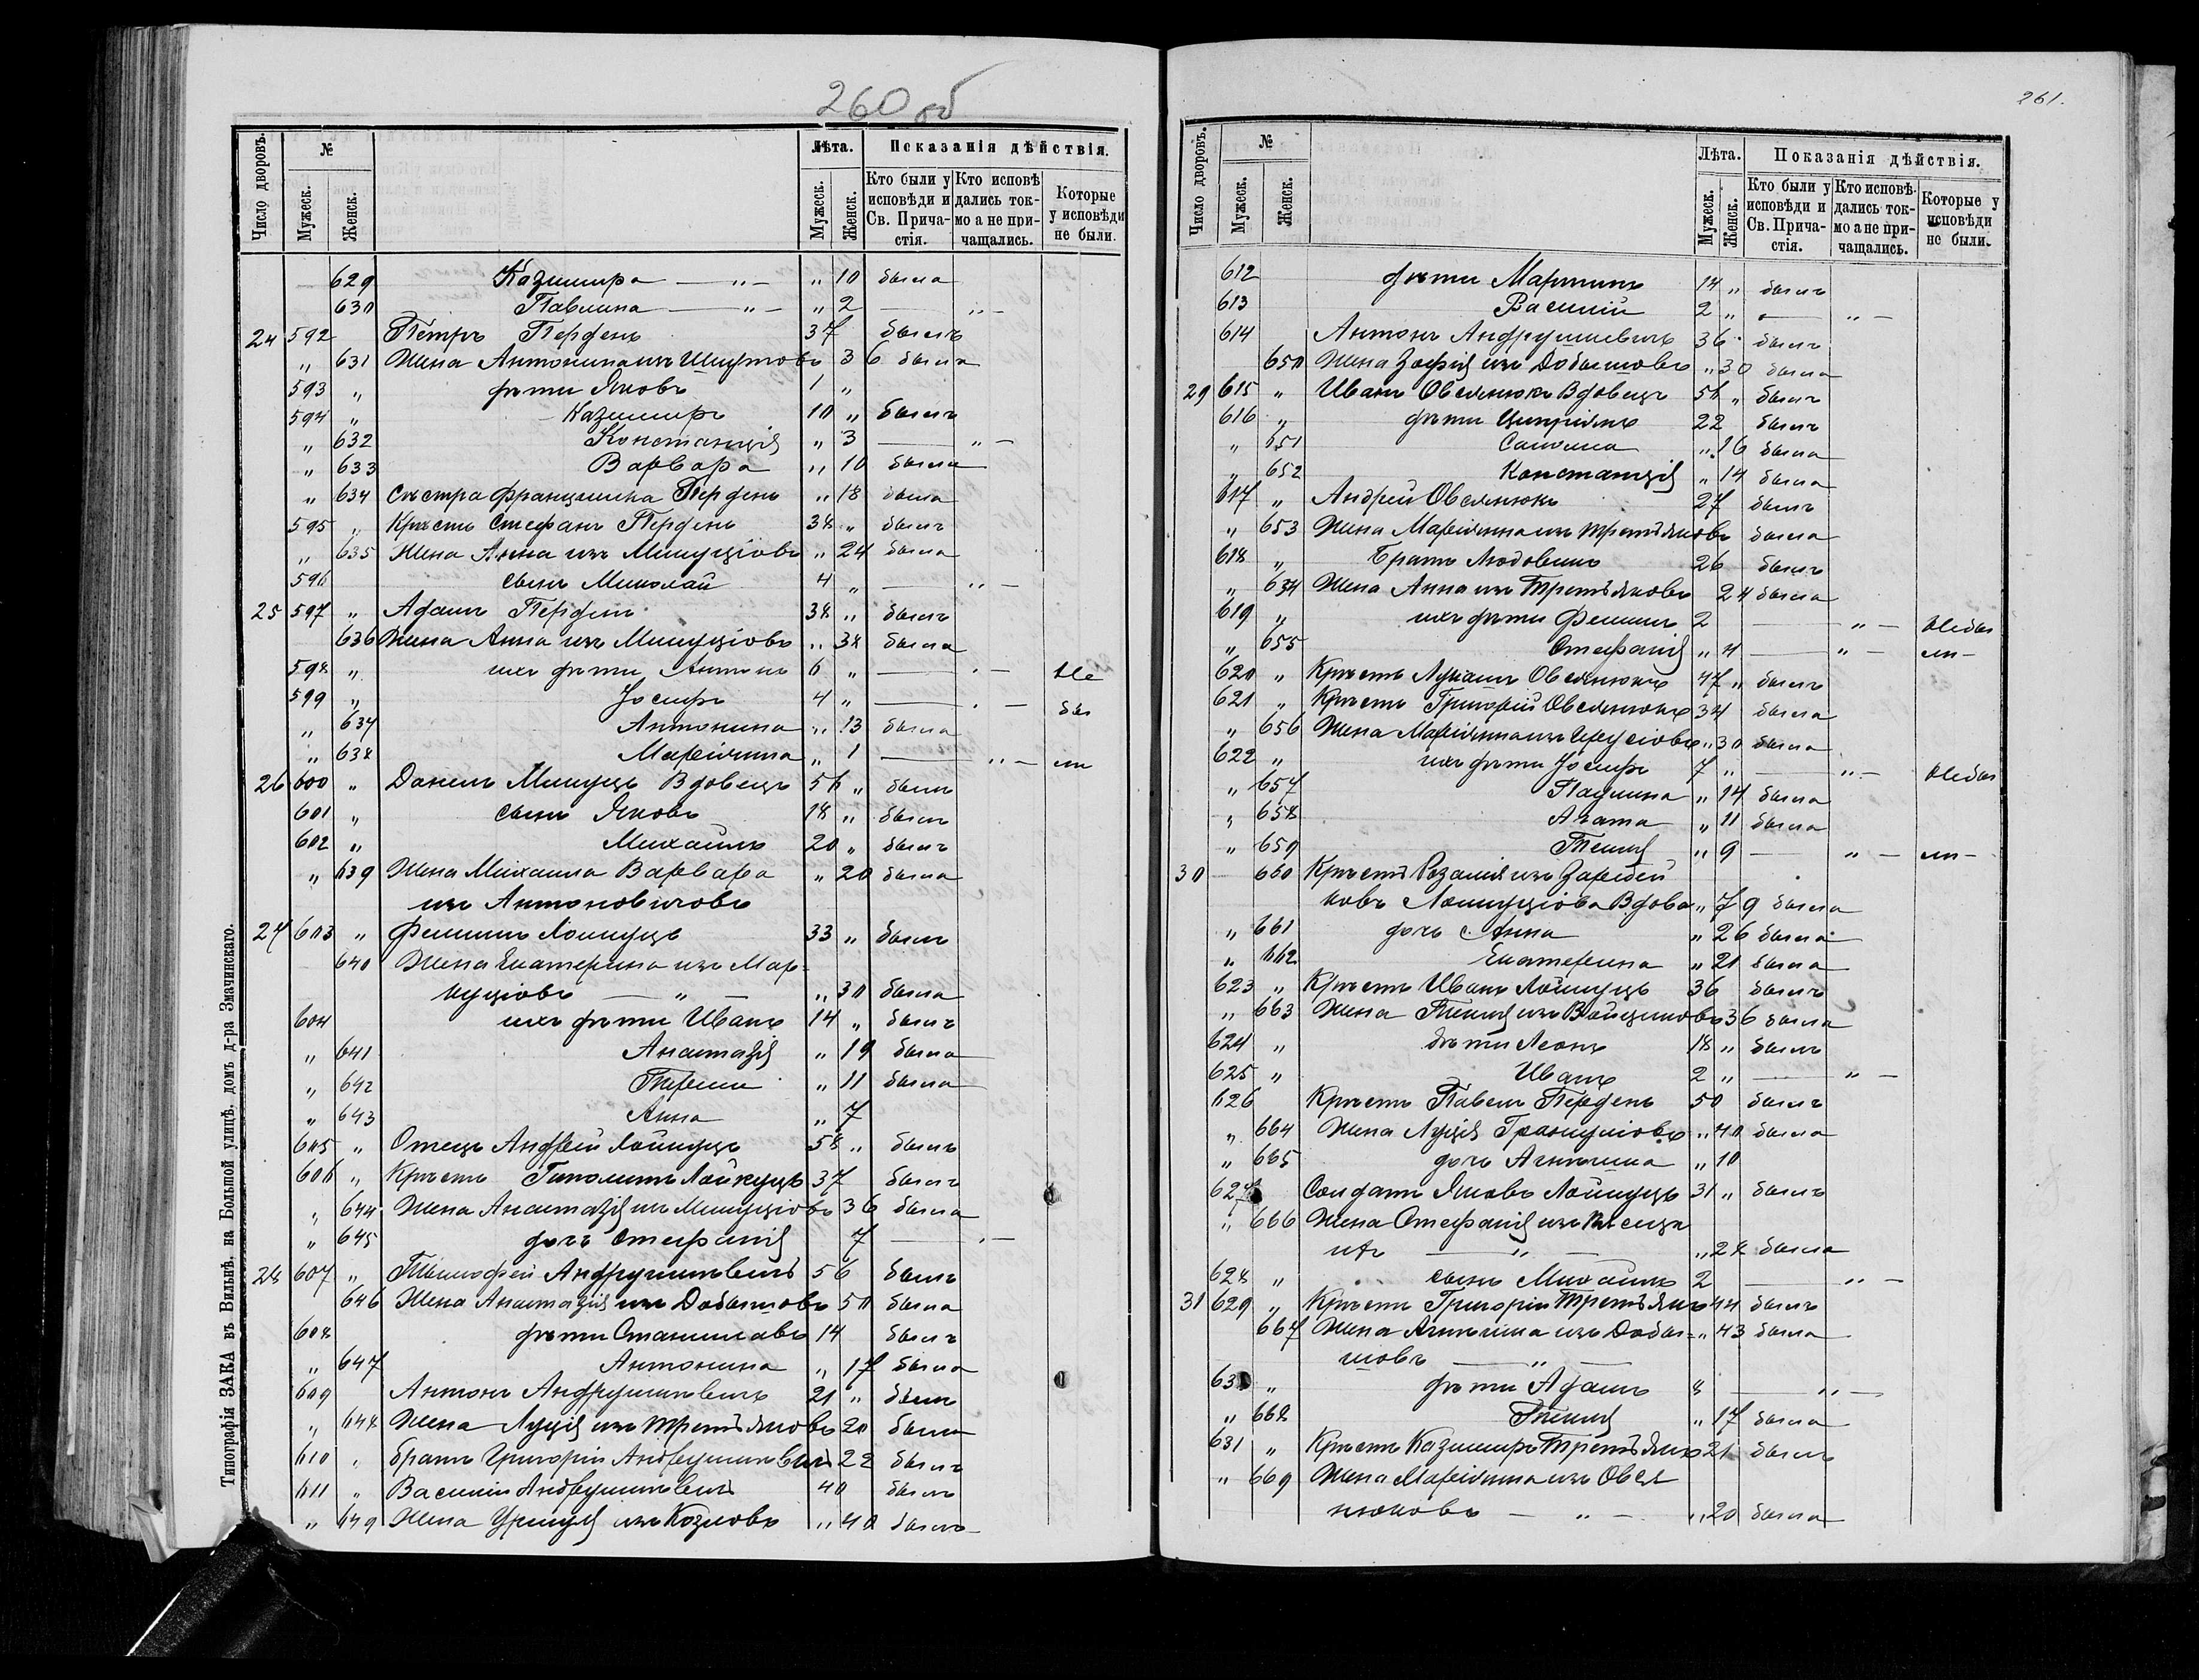 260 об
Число дворовъ. № Лѣта. Показанія дѣйствія.
Мужеск. Женск. Мужеск. Женск. Кто были у исповѣди и Св. Причастія. Кто исповѣдались токмо а не причащались. Которые у исповѣди не были.
629 Казимира — „ — „ 10 была
630 Павлина — „ — „ 2 — „ —
24 592 Петръ Перденъ 37 былъ
„ 631 Жена Антонина изъ 36 была
593 „ дѣти Яковъ 1 „
594 „ Казимиръ 10 „ былъ
„ 632 Констанція „ 3 — „ —
„ 633 Варвара „ 10 была
„ 634 Сестра Францишка Перденъ „ 18 была
595 „ Крест Стефанъ Перденъ 38 „ былъ
„ 635 Жена Анна изъ Микуціовъ „ 24 была
596 сынъ Миколай 4 „ — „ —
25 597 „ Адамъ Перденъ 38 „ былъ
636 Жена Анна изъ Микуціовъ „ 38 была
598 „ ихъ дѣти Антонъ 6 „ — „ — Не
599 „ Іосифъ 4 „ — „ — бы
„ 637 Антонина „ 13 была
„ 638 Маріянна „ 1 — „ — ли
26 600 „ Данилъ Микуць Вдовецъ 56 „ былъ
601 „ сынъ Яковъ 18 „ былъ
602 „ Михаилъ 20 „ былъ
„ 639 Жена Михаила Варвара „ 20 была
изъ Антоновичовъ
27 603 „ Филипъ Лойкуць 33 „ былъ
640 Жена Екатерина изъ Мар-
куціовъ — „ — „ 30 была
604 ихъ дѣти Иванъ 14 „ былъ
„ 641 Анастазія „ 19 была
„ 642 Тереса „ 11 была
„ 643 Анна „ 7
605 „ Отецъ Андрей Лойкуць 58 „ былъ
606 „ Крест Гиполитъ Лойкуць 37 былъ
„ 644 Жена Анастазія изъ Микуціовъ 36 была
„ 645 дочь Стефанія 7 — „ —
28 607 „ Тимофей Андрушкевичъ 56 былъ
646 Жена Анастазія изъ Добышовъ 50 была
608 дѣти Станиславъ 14 былъ
„ 647 Антонина „ 17 была
609 Антонъ Андрушкевичъ 21 „ былъ
„ 648 Жена Луція изъ Третьяковъ 20 была
610 „ братъ Григорій Андрушкевичъ 22 былъ
611 „ Василій Андрушкевичъ 40 былъ
„ 649 Жена Уршуля изъ Козловъ „ 40 была
Типографія ЗАКА въ Вильнѣ, на Большой улицѣ, домъ д-ра Змачинскаго.
261.
Число дворовъ. № Лѣта. Показанія дѣйствія.
Мужеск. Женск. Мужеск. Женск. Кто были у исповѣди и Св. Причастія. Кто исповѣдались токмо а не причащались. Которые у исповѣди не были.
612 дѣти Мартинъ 14 „ былъ
613 Василій 2 „ — „ —
614 Антонъ Андрушкевичъ 36 былъ
650 Жена Зофія изъ Добышовъ „ 30 была
29 615 „ Иванъ Овсянюкъ Вдовецъ 56 „ былъ
616 „ дѣти Ципріянъ 22 былъ
„ 651 Саломея „ 16 была
„ 652 Констанція „ 14 была
617 „ Андрей Овсянюкъ 27 былъ
„ 653 Жена Маріянна изъ Третьяковъ была
618 „ Братъ Людовикъ 26 былъ
„ 654 Жена Анна изъ Третьяковъ 24 была
619 „ ихъ дѣти Филипъ 2 — „ — Небы
„ 655 Стефанія „ 4 — „ — ли —
620 „ Крест Лукашъ Овсянюкъ 47 „ былъ
621 „ Крест Григорій Овсянюкъ 34 была
„ 656 Жена Маріянна изъ „ 30 была
622 „ ихъ дѣти Іосифъ 7 „ — „ — Небы
„ 657 Паулина „ 14 была
„ 658 Агата „ 11 была
„ 659 Текля „ 9 — „ — ли —
30 660 Крест Розалія изъ Зарѣцей
ковъ Лойкуціова Вдова „ 79 была
„ 661 дочь Анна „ 26 была
„ 662 Екатерина „ 21 была
623 „ Крест Иванъ Лойкуць 36 былъ
„ 663 Жена Текля изъ Войциковъ 36 была
624 „ дѣти Леонъ 18 „ былъ
625 „ Иванъ 2 „ — „ —
626 Крест Павелъ Перденъ 50 былъ
„ 664 Жена Луція „ 40 была
„ 665 дочь Агнешка „ 10
627 Солдатъ Яковъ Лойкуць 31 „ былъ
„ 666 Жена Стефанія изъ
— „ — „ 28 была
628 „ сынъ Михаилъ 2 — „ —
31 629 „ Крест Григорій Третьякъ 44 былъ
667 Жена Агнешка изъ Добы- „ 43 была
шовъ — „ —
63 „ дѣти Адамъ 8 — „ —
„ 668 Текля „ 17 была
631 „ Крест Казимиръ Третьякъ 21 былъ
„ 669 Жена Маріянна изъ Овся
нюковъ — „ — „ 20 была